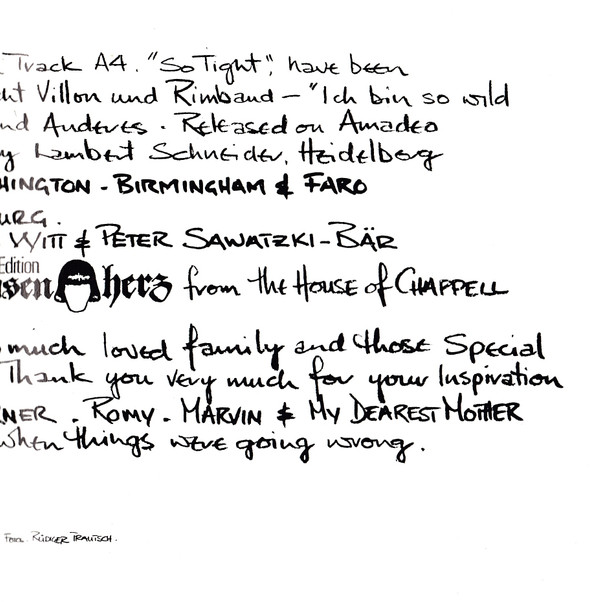 Track A4. "So Tight", have been
ht Villon und Rimbaud – "Ich bin so wild
nd Anderes . Released on Amadeo
y Lambert Schneider, Heidelberg
HINGTON - BIRMINGHAM & FARO
URG.
WITT & PETER SAWATZKI-BÄR
Edition
sen herz from the House of CHAPPELL
much loved family and those Special
Thank you very much for your Inspiration
NER . ROMY . MARVIN & MY DEAREST MOTHER
when things were going wrong.
RÜDIGER TRAUTSCH.